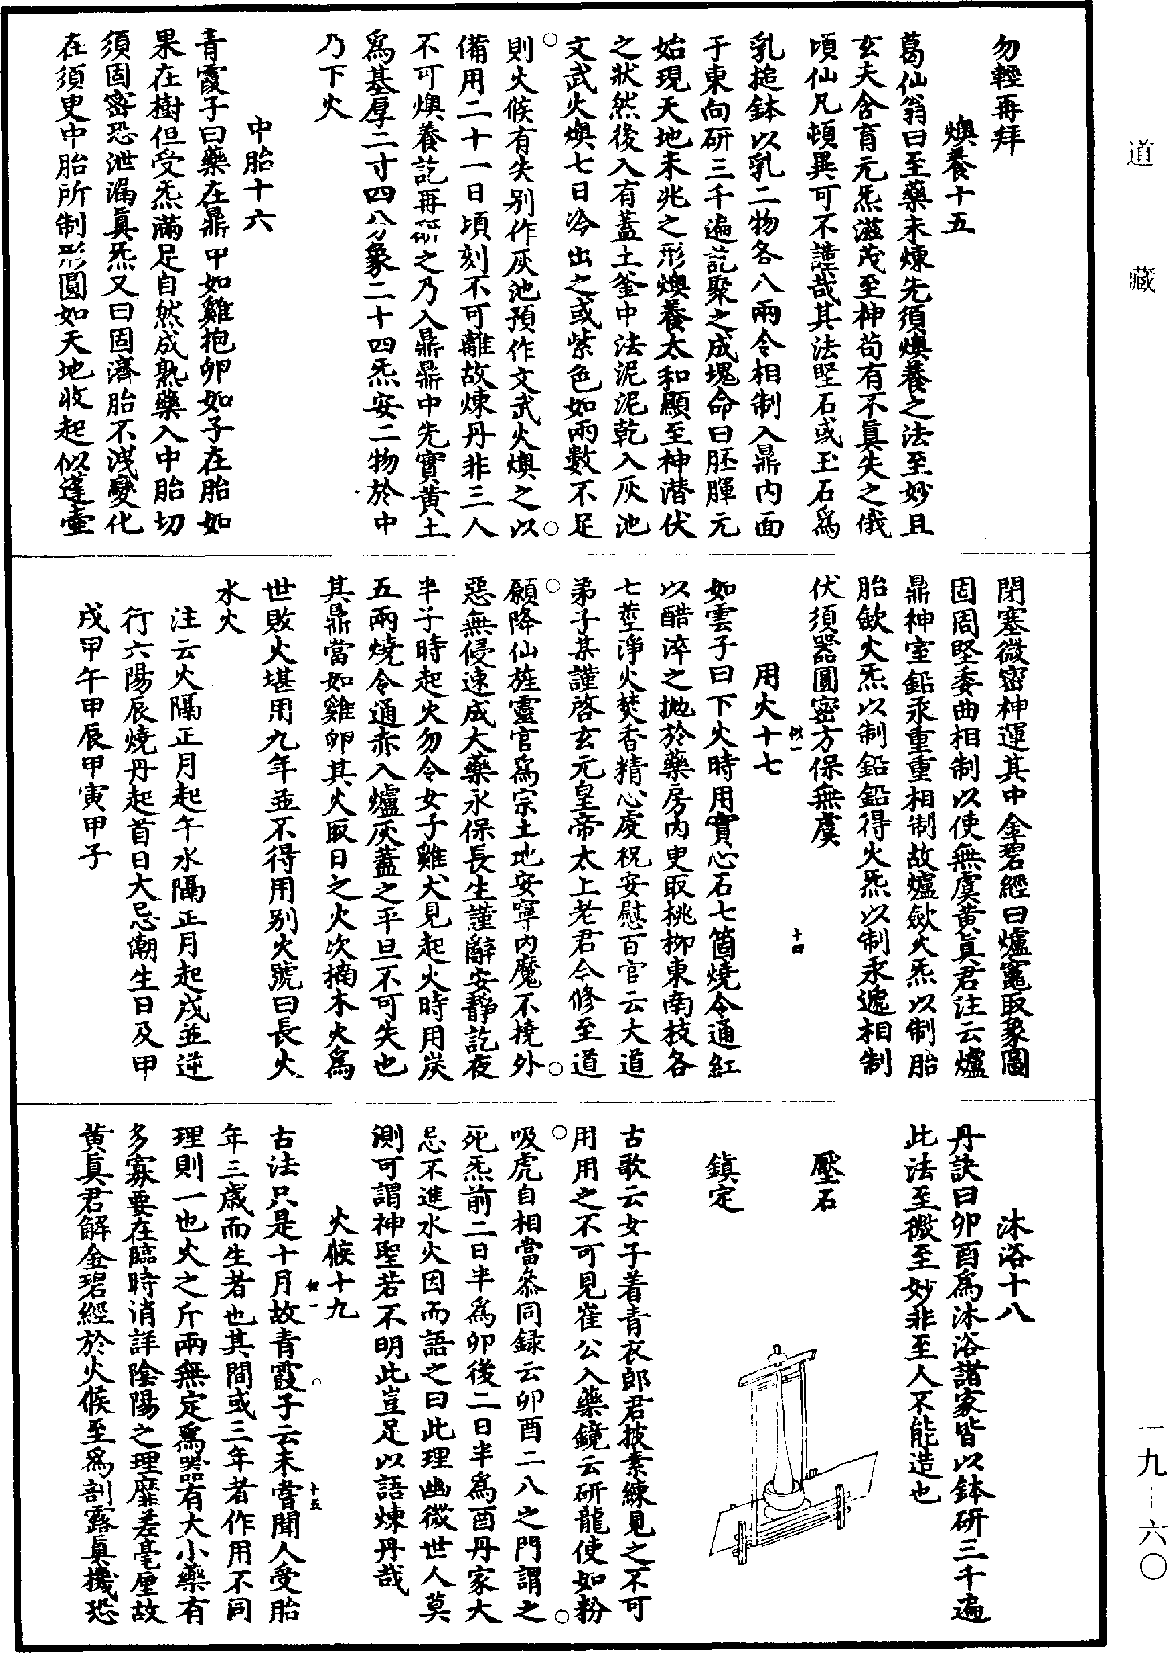 勿輕再拜
燠養十五
葛仙翁曰至藥未煉先須燠養之法至妙且
玄夫含育元炁滋茂至神苟有不真失之俄
頃仙凡頓異可不謹哉其法堅石或玉石爲
乳搥鉢以乳二物各八兩令相制入鼎内面
于東向研三千遍訖聚之成塊命曰胚腪元
始現天地未兆之形燠養太和顯至神潜伏
之狀然後入有蓋土釜中法泥泥乾入灰池
文武火燠七日冷出之或紫色如兩數不足
則火候有失别作灰池預作文武火燠之以
備用二十一日頃刻不可離故煉丹非三人
不可燠養訖再研之乃入鼎鼎中先實黄土
爲基厚二寸四八分象二十四炁安二物於中
乃下火
中胎十六
青霞子曰藥在鼎中如雞抱卵如子在胎如
果在樹但受炁滿足自然成熟藥入中胎切
須固密恐泄漏真炁又曰固濟胎不洩變化
在須臾中胎所制形圓如天地收起似蓬壺
閉塞微密神運其中金碧經曰爐竈取象圖
固周堅委曲相制以使無虞黄真君注云爐
鼎神室鉛汞重重相制故爐歛火炁以制胎
胎歛火炁以制鉛鉛得火炁以制汞遞相制
伏須器圓密方保無虞
十四
用火十七
如雲子曰下火時用實心石七箇燒令通紅
以醋淬之抛於藥房内更取桃柳東南枝各
七莖淨火焚香精心虔祝安慰百官云大道
弟子某謹啓玄元皇帝太上老君今修至道
願降仙旌靈官爲宗土地安寧内魔不撓外
惡無侵速成大藥永保長生謹辭安靜訖夜
半子時起火勿令女子雞犬見起火時用炭
五兩燒令通赤入爐灰蓋之平旦不可失也
其鼎當如雞卵其火取日之火次楠木火爲
世敗火堪用九年並不得用别火號曰長火
水火
注云火隔正月起午水隔正月起戌並逆
行六陽辰燒丹起首日大忌潮生日及甲
戌甲午甲辰甲寅甲子
沐浴十八
丹訣曰卯酉爲沐浴諸家皆以鉢研三千遍
此法至微至妙非至人不能造也
壓石
鎮定
古歌云女子着青衣郎君披素練見之不可
用用之不可見崔公入藥鏡云研龍使如粉
吸虎自相當叅同録云卯酉二八之門謂之
死炁前二日半爲卯後二日半爲酉丹家大
忌不進水火因而語之曰此理幽微世人莫
測可謂神聖若不明此豈足以語煉丹哉
火候十九
十五
古法只是十月故青霞子云未嘗聞人受胎
年三歲而生者也其間或三年者作用不同
理則一也火之斤兩無定爲器有大小藥有
多寡要在臨時消詳陰陽之理靡差毫厘故
黄真君解金碧經於火候至爲剖露真機恐
道
藏
一九-六〇